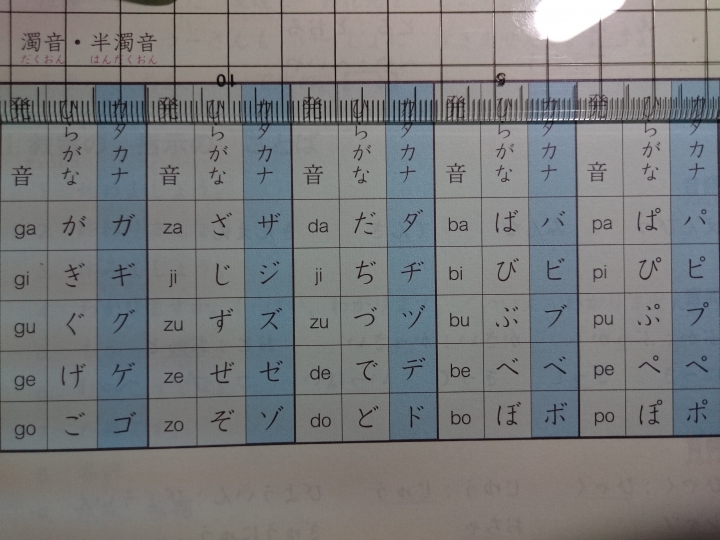 濁音・半濁音
だくおん はんだくおん
10 5
発音 ひらがな カタカナ 発音 ひらがな カタカナ 発音 ひらがな カタカナ 発音 ひらがな カタカナ 発音 ひらがな カタカナ
ga が ガ za ざ ザ da だ ダ ba ば バ pa ぱ パ
gi ぎ ギ ji じ ジ ji ぢ ヂ bi び ビ pi ぴ ピ
gu ぐ グ zu ず ズ zu づ ヅ bu ぶ ブ pu ぷ プ
ge げ ゲ ze ぜ ゼ de で デ be べ ベ pe ぺ ペ
go ご ゴ zo ぞ ゾ do ど ド bo ぼ ボ po ぽ ポ